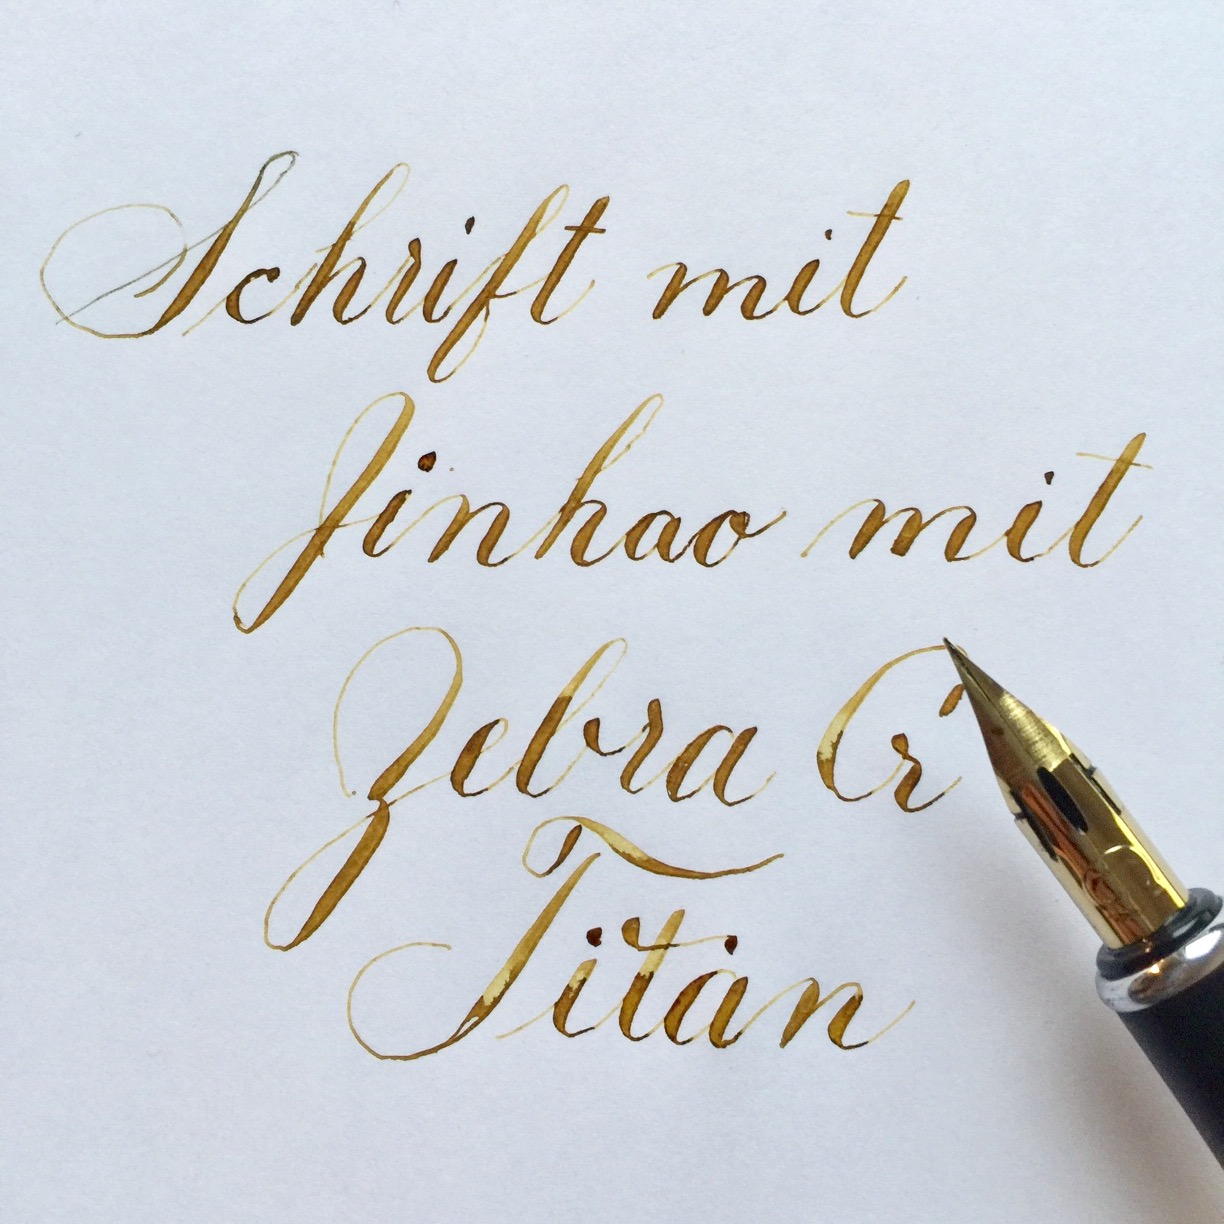 Schrift mit
Jinhao mit
Zebra G
Titan